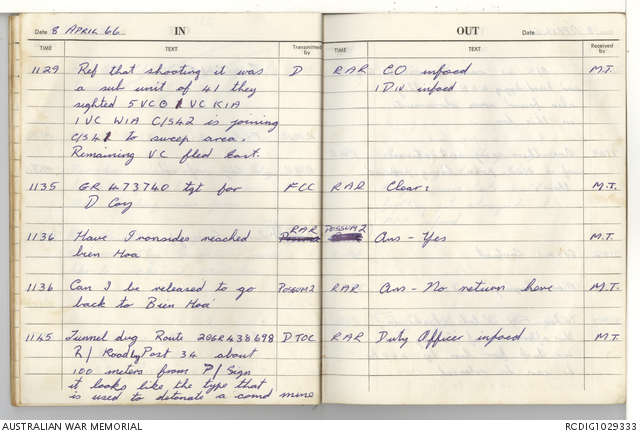 Date 8 APRIL 66. IN
TIME TEXT Transmitted by
1129 Ref that shooting it was D
a sub unit of 41 they
sighted 5 VC 1 VC KIA
1 VC WIA C/S42 is joining
C/S41 to sweep area.
Remaining VC fled East.
1135 GR 473740 tgt for FCC
D Coy
1136 Have Ironsides reached RAR
bien Hoa
1136 Can I be released to go POSSUM2
back to Bien Hoa
1145 Tunnel dug Route 20GR438698 DTOC
R/ Roadby Post 34 about
100 meters from P/ Sign
it looks like the type that
is used to detonate a comd mine
OUT Date
TIME TEXT Received by
RAR CO infosed M.T.
1 Div infoed
RAR Clear: M.T.
POSSUM2 Ans - Yes M.T.
RAR Ans - No return here M.T.
RAR Duty Officer infosed M.T.
AUSTRALIAN WAR MEMORIAL RCDIG1029333